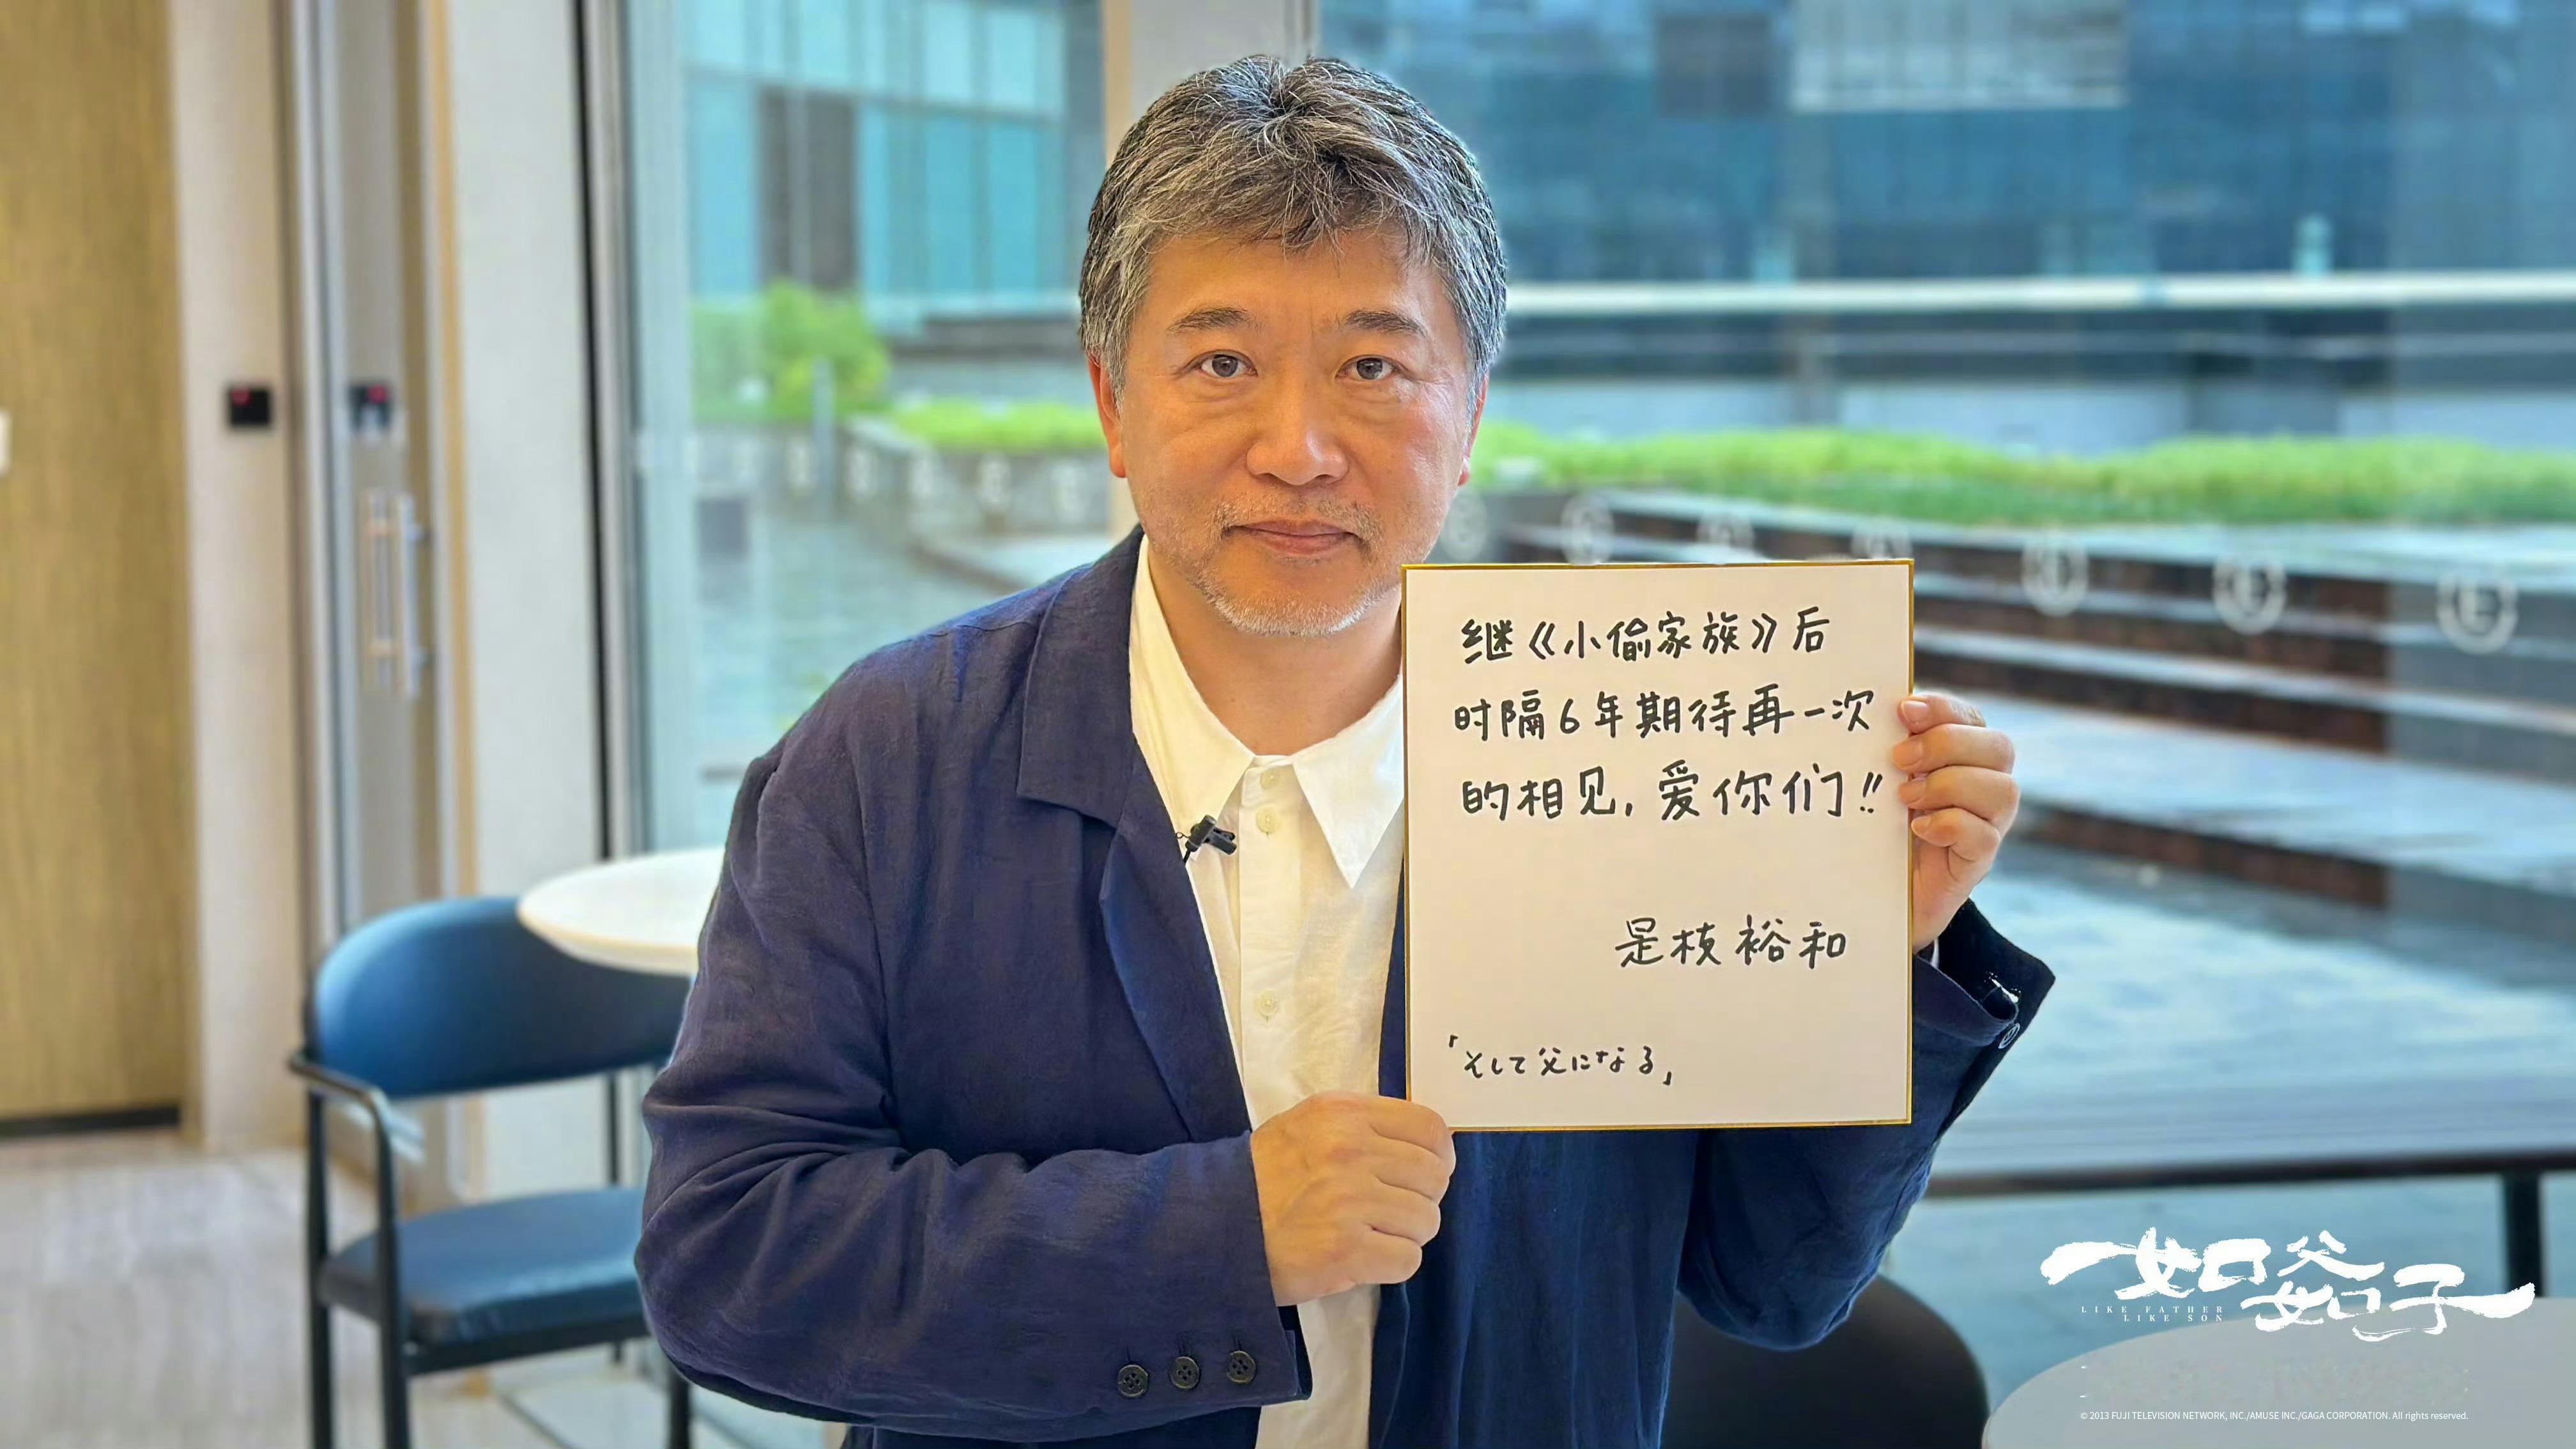 继《小偷家族》后
时隔6年期待再一次
的相见，爱你们!!
是枝裕和
「そして父になる」
如父如子
LIKE FATHER
LIKE SON
© 2013 FUJI TELEVISION NETWORK, INC./AMUSE INC./GAGA CORPORATION. All rights reserved.